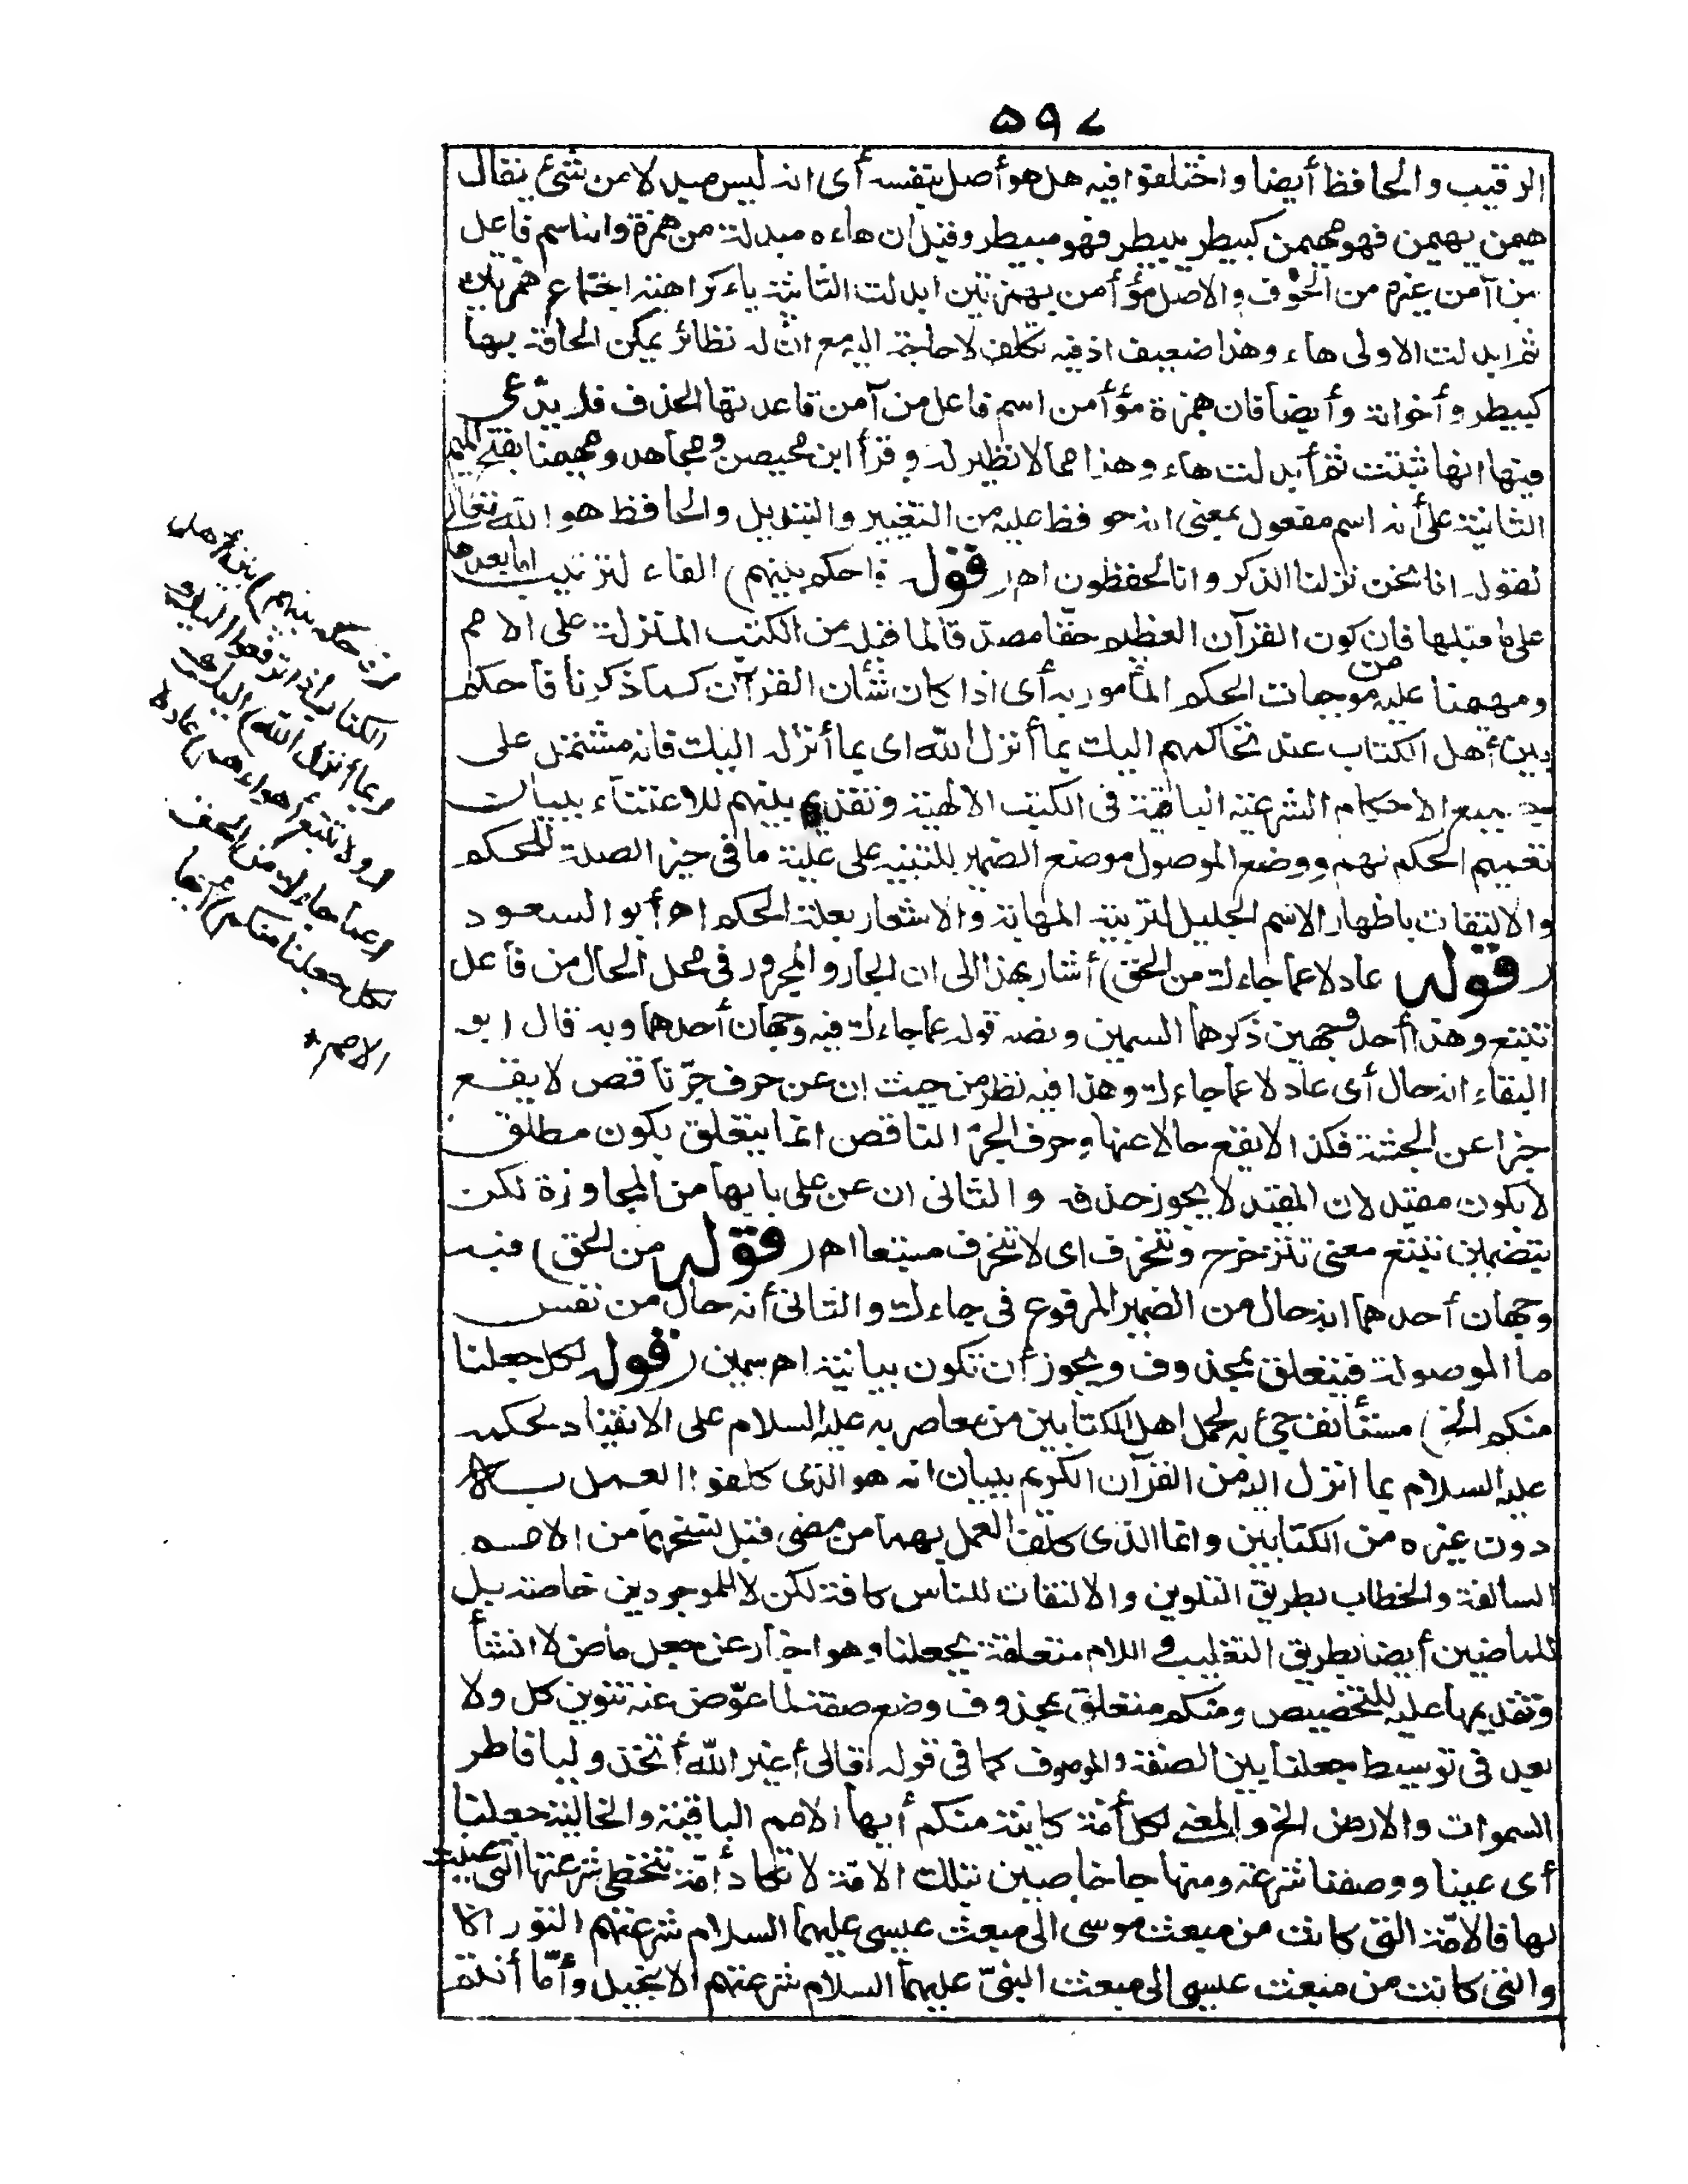 ٥٩٧
الرقيب والحافظ أيضا واختلفوا فيه هل هو أصل بنفسه أى انه ليس مبدلا من شئ يقال
هيمن يهيمن فهو مهيمن كبيطر يبيطر فهو مبيطر وقيل ان هاءه مبدلة من همزة وانه اسم فاعل
من آمن غيره من الخوف والاصل مؤأمن بهمزتين ابدلت الثانية ياء كراهية اجتماع همزتين
ثم ابدلت الاولى هاء وهذا ضعيف اذ فيه تكلف لا حاجة اليه مع ان له نظائر يمكن الحاقه بها
كبيطر وأخواته وأيضا فان همزة مؤأمن اسم فاعل من آمن قاعدتها الحذف فلا يدّعى
فيها انها ثبتت ثم أبدلت هاء وهذا مما لا نظير له وقرأ ابن محيصن ومجاهد ومهيمنا بفتح الميم
الثانية على أنه اسم مفعول بمعنى انه حوفظ عليه من التغيير والتبديل والحافظ هو الله تعالى
لقوله انا نحن نزلنا الذكر وانا له لحفظون اهـ (قوله فاحكم بينهم) الفاء لترتيب ما بعدها
على ما قبلها فان كون القرآن العظيم حقا مصدقا لما قبله من الكتب المنزلة على الامم
ومهيمنا عليه من موجبات الحكم المأمور به أى اذا كان شأن القرآن كما ذكرنا فاحكم
بين أهل الكتاب عند تحاكمهم اليك بما أنزل الله اى بما أنزله اليك فانه مشتمل على
جميع الاحكام الشرعية الباقية فى الكتب الالهية وتقديم بينهم للاعتناء ببيان
تعميم الحكم لهم ووضع الموصول موضع الضمير للتنبيه على علية ما فى حيز الصلة للحكم
والالتفات باظهار الاسم الجليل لتربية المهابة والاشعار بعلة الحكم اهـ أبو السعود
(قوله عادلا عما جاءك من الحق) أشار بهذا الى ان الجار والمجرور فى محل الحال من فاعل
تتبع وهذا أحد وجهين ذكرهما السمين ونصه قوله عما جاءك فيه وجهان أحدهما وبه قال ابو
البقاء انه حال أى عادلا عما جاءك وهذا فيه نظر من حيث ان عن حرف جرّ ناقص لا يقع
خبرا عن الجثة فكذا لا يقع حالا عنها وحرف الجرّ الناقص انما يتعلق بكون مطلق
لا بكون مقيد لان المقيد لا يجوز حذفه والثانى ان عن على بابها من المجاوزة لكن
بتضمين تتبع معنى تتزحزح وتنحرف اى لا تنحرف متبعا اهـ (قوله من الحق) فيه
وجهان أحدهما انه حال من الضمير المرفوع فى جاءك والثانى أنه حال من نفس
ما الموصولة فيتعلق بمحذوف ويجوز أن تكون بيانية اهـ سمين (قوله لكل جعلنا
منكم الخ) مستأنف جئ به لحمل اهل الكتابين من معاصريه عليه السلام على الانقياد لحكمه
عليه السلام بما انزل اليه من القرآن الكريم ببيان انه هو الذى كلفوا العمل به
دون غيره من الكتابين وانما الذى كلف العمل بهما من مضى قبل نسخهما من الامم
السالفة والخطاب بطريق التلوين والالتفات للناس كافة لكن لا للموجودين خاصة بل
للماضين أيضا بطريق التغليب و اللام متعلقة بجعلنا وهو اخبار عن جعل ماض لا انشأ
وتقديمها عليه للتخصيص ومنكم متعلق بمحذوف وضع صفة لما عوّض عنه تنوين كل ولا
بعد فى توسيط جعلنا بين الصفة والموصوف كما فى قوله تعالى أغير الله أتخذ وليا فاطر
السموات والارض الخ والمعنى لكل أمّة كائنة منكم أيها الامم الباقية والخالية جعلنا
أى عينا ووضعنا شرعة ومنهاجا خاصين بتلك الامّة لا تكاد أمّة تتخطى شرعتها التى عينت
لها فالامّة التى كانت من مبعث موسى الى مبعث عيسى عليهما السلام شرعتهم التوراة
والتى كانت من مبعث عيسى الى مبعث النبىّ عليهما السلام شرعتهم الانجيل وأمّا أنتم
(فاحكم بينهم) بين أهل
الكتاب اذا ترفعوا اليك
(بما أنزل الله) اليك
(ولا تتبع أهواءهم) عادلا
(عما جاءك من الحق
لكل جعلنا منكم) أيها
الامم *